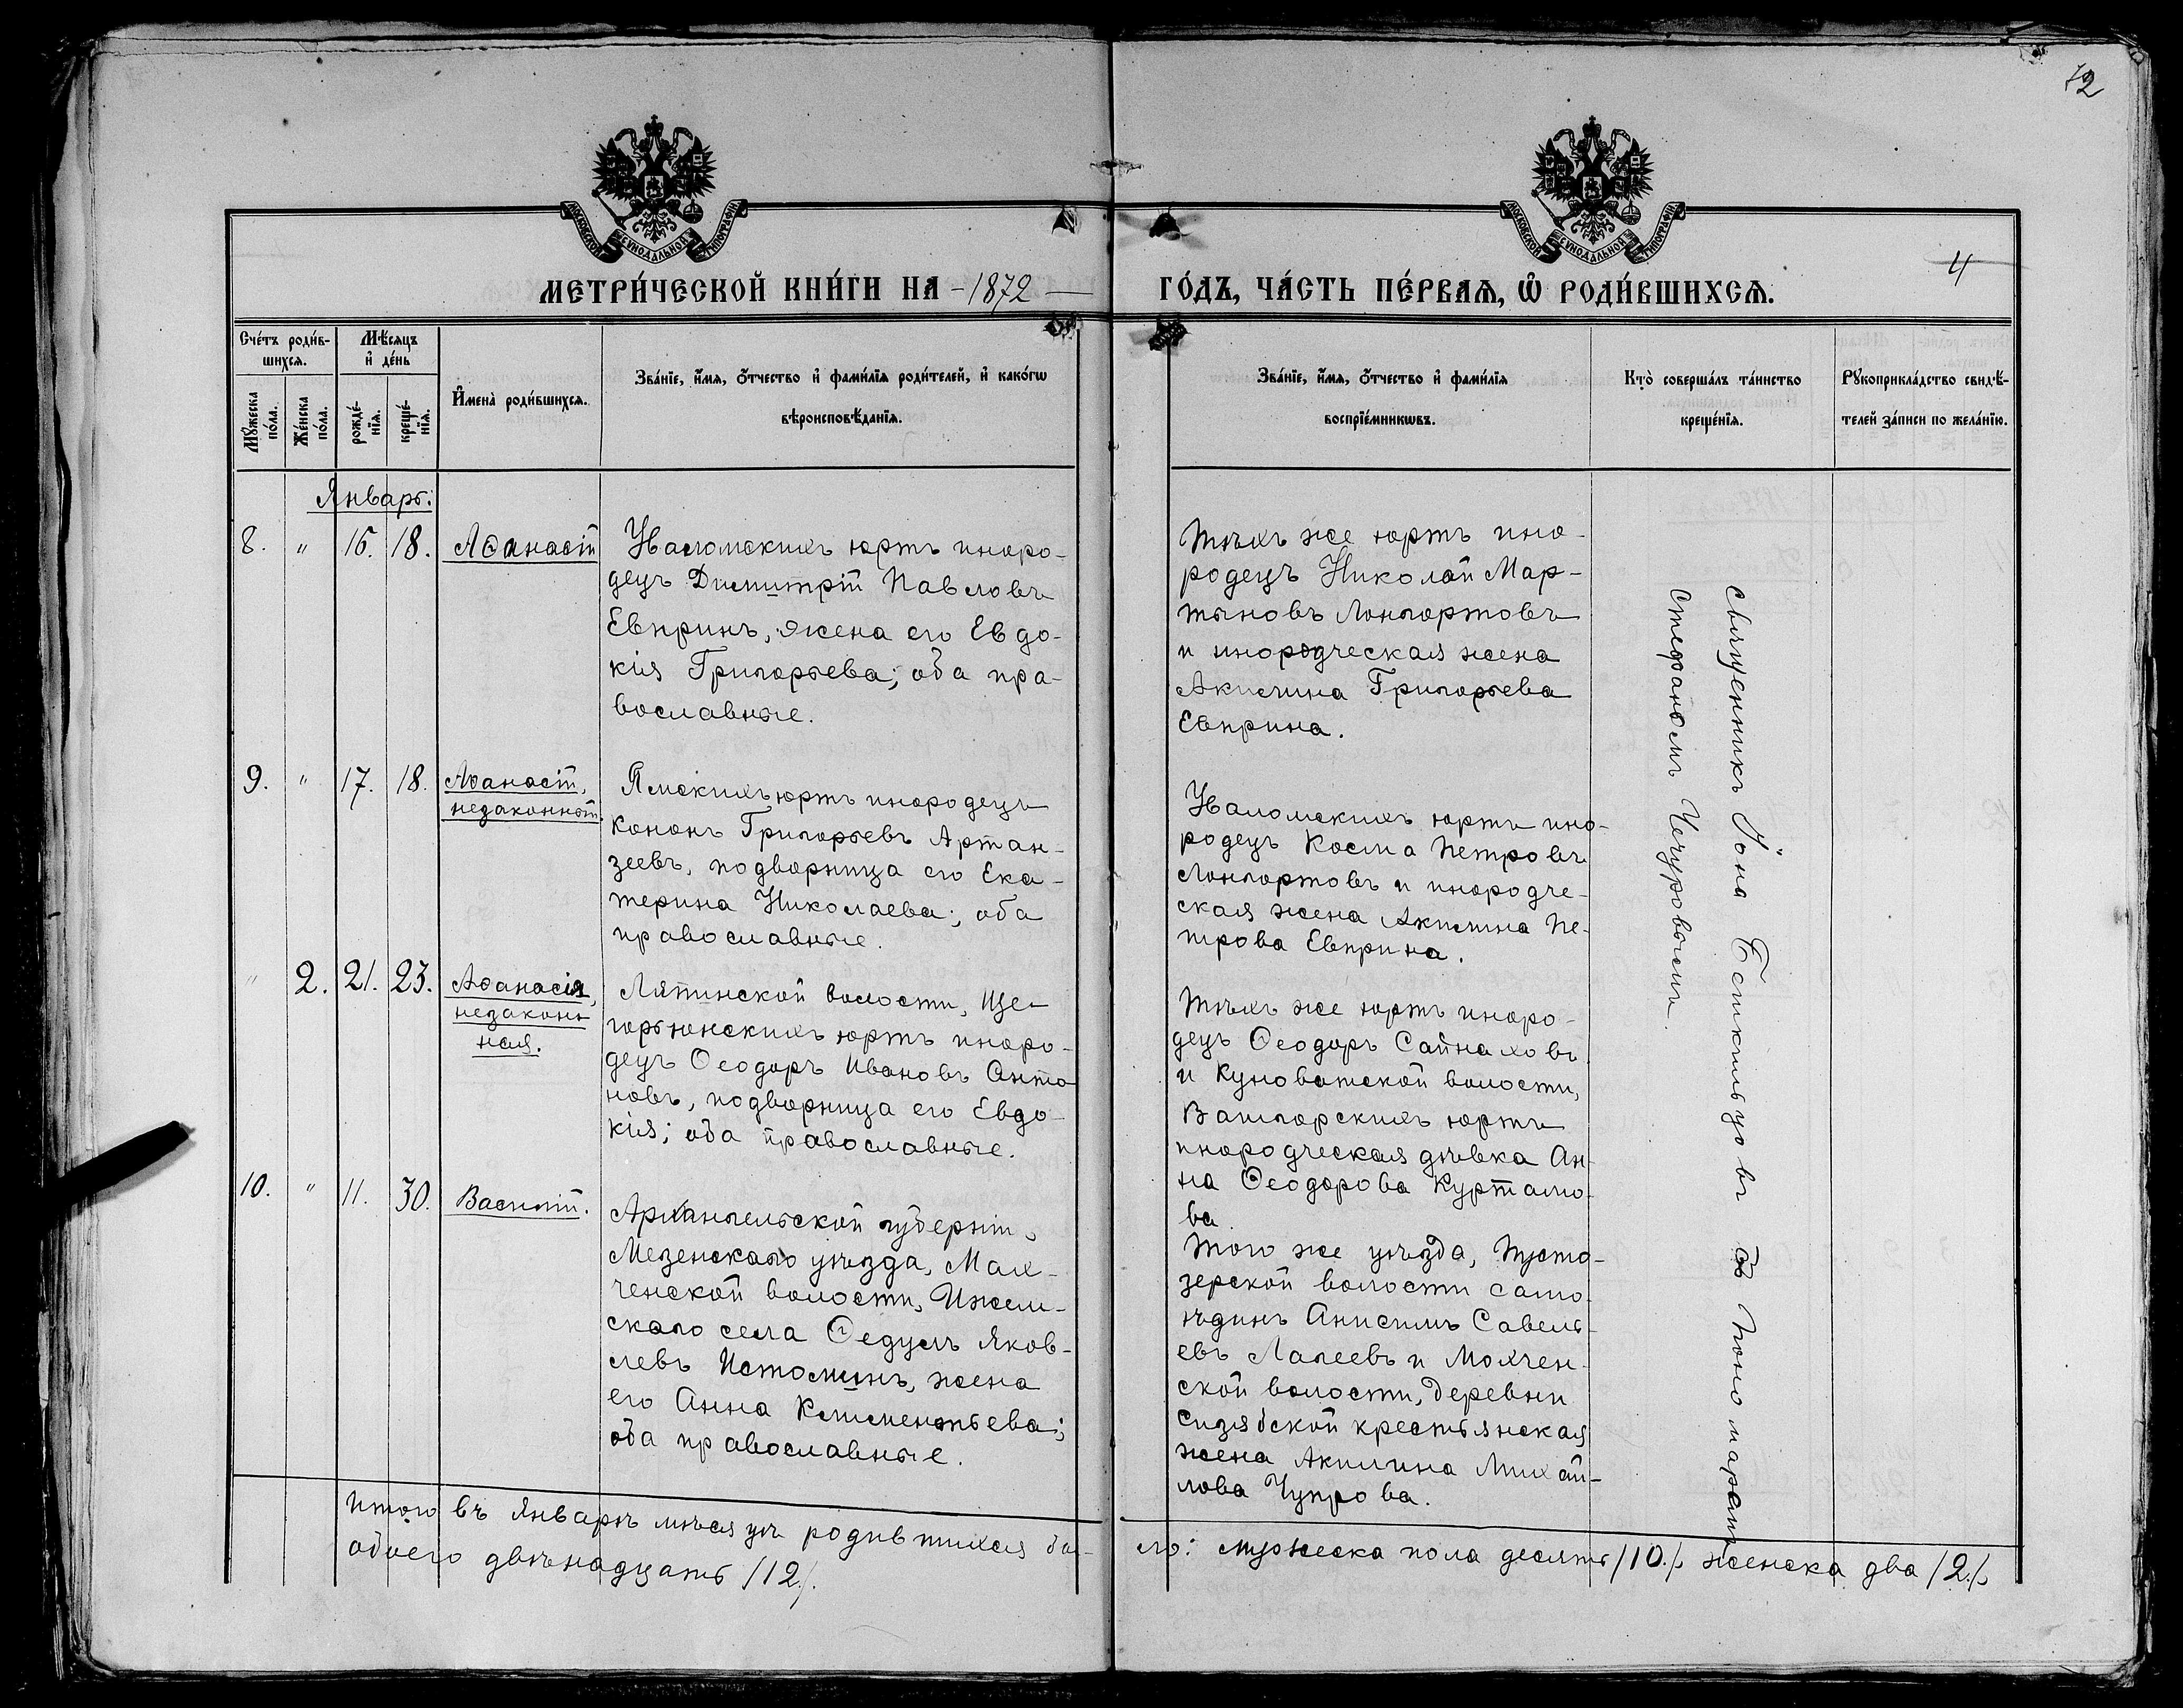 72
МОСКОВСКОЙ СѴНОДАЛЬНОЙ ТИПОГРАФІИ
МОСКОВСКОЙ СѴНОДАЛЬНОЙ ТИПОГРАФІИ
4
МЕТРИ́ЧЕСКОЙ КНИ́ГИ НА -1872- ГО́ДЪ, ЧА́СТЬ ПЕ́РВАѦ, Ѡ҆ РОДИ́ВШИХСѦ.
Сче́тъ роди́в-
шихсѧ.
Му́жеска по́ла.
Же́нска по́ла.
Мѣ́сяцъ
и҆ де́нь
рожде́-
нїѧ.
креще́-
нїѧ.
И҆мена̀ роди́вшихсѧ.
Зва́нїе, и҆́мѧ, ѻ҆́тчество и҆ фами́лїѧ роди́телей, и҆ како́гѡ
вѣроисповѣ́данїѧ.
Зва́нїе, и҆́мѧ, ѻ҆́тчество и҆ фами́лїѧ
воспрїе́мникѡвъ.
Кто̀ соверша́лъ та́инство
креще́нїѧ.
Рꙋкоприкла́дство свидѣ́-
телей за́писи по жела́нїю.
Январь:
8. " 16. 18. Аѳанасій
Наломскихъ юртъ иноро-
децъ Димитрій Павловъ
Евпринъ, жена его Евдо-
кія Григорьева; оба пра-
вославные.
Тѣхъ же юртъ ино-
родецъ Николай Мар-
тыновъ Лонгортовъ
и инородческая жена
Акилина Григорьева
Евприна.
9. " 17. 18. Аѳанасій,
незаконный.
Ямскихъ юртъ инородецъ
Кононъ Григорьевъ Артан-
зеевъ, подворница его Ека-
терина Николаева; оба
православные.
Наломскихъ юртъ ино-
родецъ Косма Петровъ
Лонгортовъ и инородче-
ская жена Акилина Пе-
трова Евприна.
" 2. 21. 23. Аѳанасія,
незакон-
ная.
Ляпинской волости, Ще-
горьинскихъ юртъ иноро-
децъ Ѳеодоръ Ивановъ Анто-
новъ, подворница его Евдо-
кія; оба православные.
Тѣхъ же юртъ иноро-
децъ Ѳеодоръ Сайнаховъ
и Куноватской волости,
Вашгорскихъ юртъ
инородческая дѣвка Ан-
на Ѳеодорова Куртамо-
ва.
10. " 11. 30. Василій.
Архангельской губерніи,
Мезенскаго уѣзда, Мох-
ченской волости, Ижем-
скаго села Ѳедулъ Яков-
левъ Истоминъ, жена
его Анна Климентьева;
оба православные.
Того же уѣзда, Пусто-
зерской волости само-
ѣдинъ Анисимъ Савель-
евъ Лапеевъ и Мохчен-
ской волости, деревни
Сизябской крестьянская
жена Акилина Михай-
лова Чупрова.
Священникъ Іона Бешкильцовъ съ Пономаремъ
Стефаномъ Чечуровымъ.
Итого въ Январѣ мѣсяцѣ родившихся бы-
ло: мужеска пола десять /10./, женска два /2./,
обоего двѣнадцать /12./.